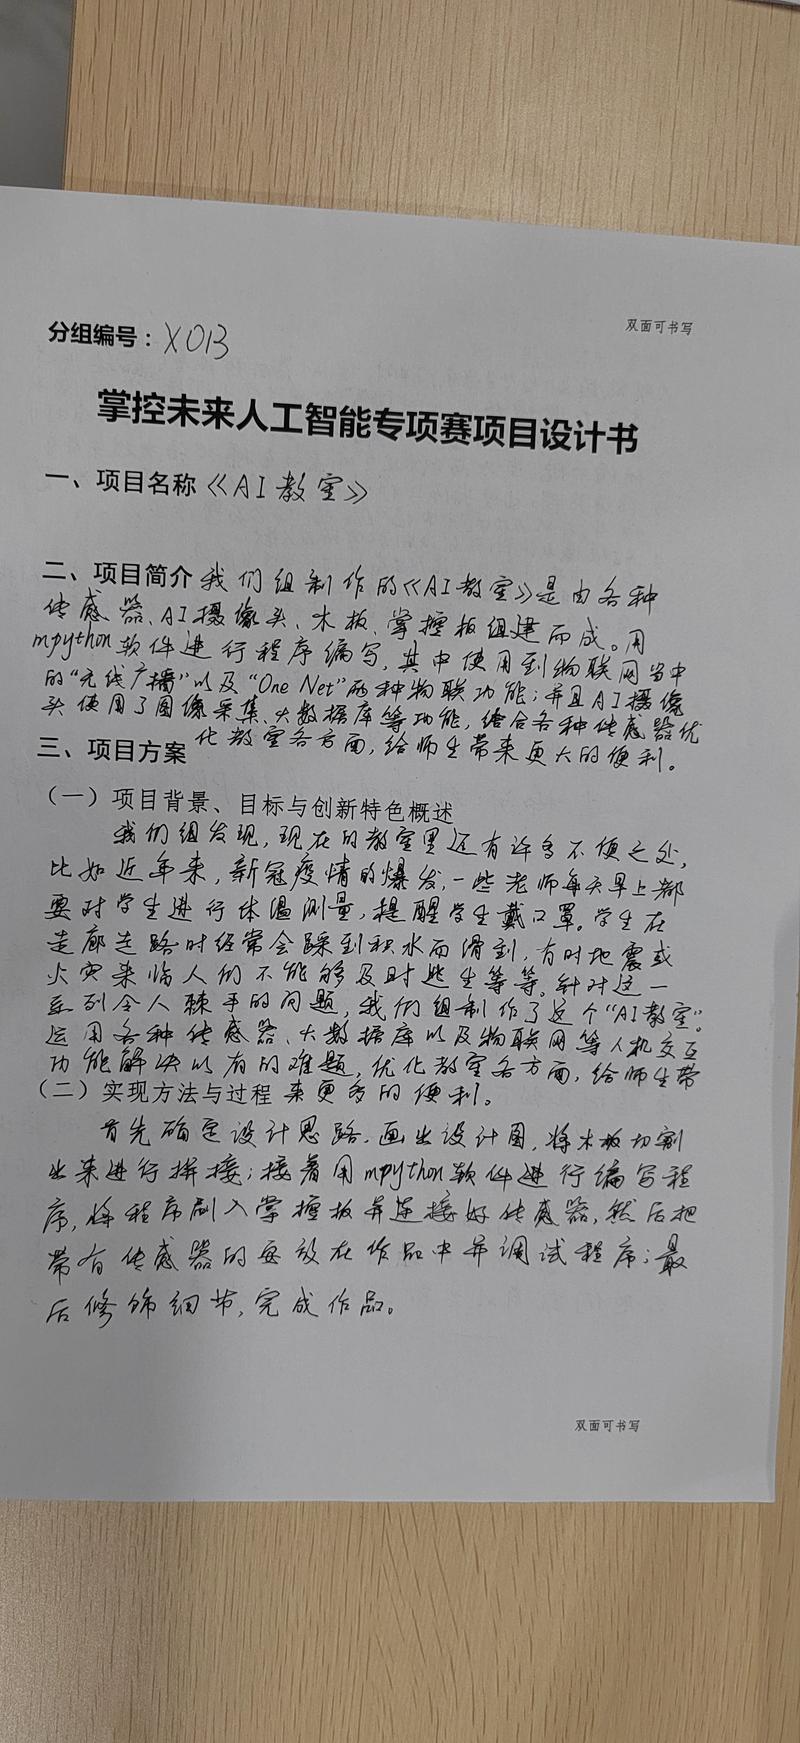 双面可书写
分组编号：X013
掌控未来人工智能专项赛项目设计书
一、项目名称《AI教室》
二、项目简介 我们组制作的《AI教室》是由各种
传感器、AI摄像头、木板、掌控板组建而成。用
mpython软件进行程序编写，其中使用到物联网当中
的“无线广播”以及“One Net”两种物联功能；并且AI摄像
头使用了图像采集、大数据库等功能，结合各种传感器优
化教室各方面，给师生带来更大的便利。
三、项目方案
（一）项目背景、目标与创新特色概述
我们组发现，现在的教室里还有许多不便之处，
比如近年来，新冠疫情的爆发，一些老师每天早上都
要对学生进行体温测量，提醒学生戴口罩。学生在
走廊走路时经常会踩到积水而滑到，有时地震或
火灾来临人们不能够及时逃生等等。针对这一
系列令人棘手的问题，我们组制作了这个“AI教室”。
运用各种传感器、大数据库以及物联网等人机交互
功能解决以有的难题，优化教室各方面，给师生带
（二）实现方法与过程 来更多的便利。
首先确定设计思路，画出设计图，将木板切割
出来进行拼接；接着用mpython软件进行编写程
序，将程序刷入掌控板并连接好传感器，然后把
带有传感器的每放在作品中并调试程序；最
后修饰细节，完成作品。
双面可书写